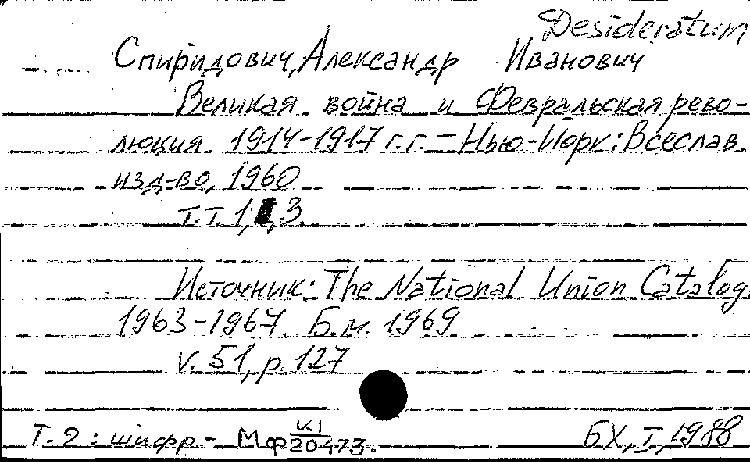 Desideratum
Спиридович, Александр Иванович
Великая война и Февральская рево-
люция 1914-1917 г.г. - Нью-Йорк: Всеслав.
изд-во, 1960
Т.Т. 1, , 3
Источник: The National Union Catalog
1963-1967. Б.м. 1969
v. 51, p. 127
Т. 2: шифр - Мф К1/20473.
БХ, I, 1988